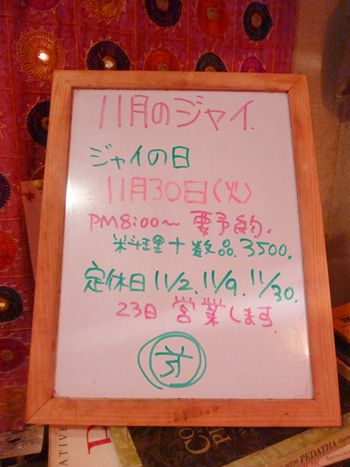 11月のジャイ.
ジャイの日
11月30日(火)
PM8:00〜 要予約.
料理十数品.3500.
定休日11/2.11/9.11/30.
23日 営業します
PEDATHA